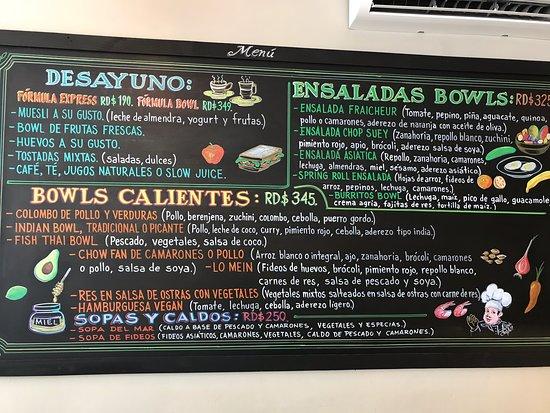 Menú
DESAYUNO:
FÓRMULA EXPRESS RD$ 190. FÓRMULA BOWL. RD$ 349.
- MUESLI A SU GUSTO. (leche de almendra, yogurt y frutas.)
- BOWL DE FRUTAS FRESCAS.
- HUEVOS A SU GUSTO.
- TOSTADAS MIXTAS. (saladas, dulces)
- CAFÉ, TÉ, JUGOS NATURALES O SLOW JUICE.
ENSALADAS BOWLS: RD$ 325
- ENSALADA FRAICHEUR (Tomate, pepino, piña, aguacate, quinoa,
pollo o camarones, aderezo de naranja con aceite de oliva.)
- ENSALADA CHOP SUEY (Zanahoria, repollo blanco, zuchini,
pimiento rojo, apio, brócoli, aderezo salsa de soya)
- ENSALADA ASIATICA (Repollo, zanahoria, camarones,
lechuga, almendras, miel, sésamo, aderezo asiático)
- SPRING ROLL ENSALADA (Hojas de arroz, fideos de
arroz, pepinos, lechuga, camarones.)
- BURRITOS BOWL (Lechuga, maíz, pico de gallo, guacamole
crema agria, fajitas de res, tortilla de maíz.)
BOWLS CALIENTES: RD$ 345.
- COLOMBO DE POLLO Y VERDURAS (Pollo, berenjena, zuchini, colombo, cebolla, puerro gordo.)
- INDIAN BOWL, TRADICIONAL O PICANTE (Pollo, leche de coco, curry, pimiento rojo, cebolla, aderezo tipo india.)
- FISH THAI BOWL (Pescado, vegetales, salsa de coco.)
- CHOW FAN DE CAMARONES O POLLO (Arroz blanco o integral, ajo, zanahoria, brócoli, camarones
o pollo, salsa de soya.)
- LO MEIN (Fideos de huevos, brócoli, pimiento rojo, repollo blanco,
carnes de res, salsa de pescado y soya.)
- RES EN SALSA DE OSTRAS CON VEGETALES (Vegetales mixtos salteados en salsa de ostras con carne de res)
- HAMBURGUESA VEGAN (Tomate, lechuga, cebolla, aderezo ligero.)
MIEL
SOPAS Y CALDOS: RD$ 250.
- SOPA DEL MAR (CALDO A BASE DE PESCADO Y CAMARONES, VEGETALES Y ESPECIAS.)
- SOPA DE FIDEOS (FIDEOS ASIÁTICOS, CAMARONES, VEGETALES, CALDO DE PESCADO Y CAMARONES.)